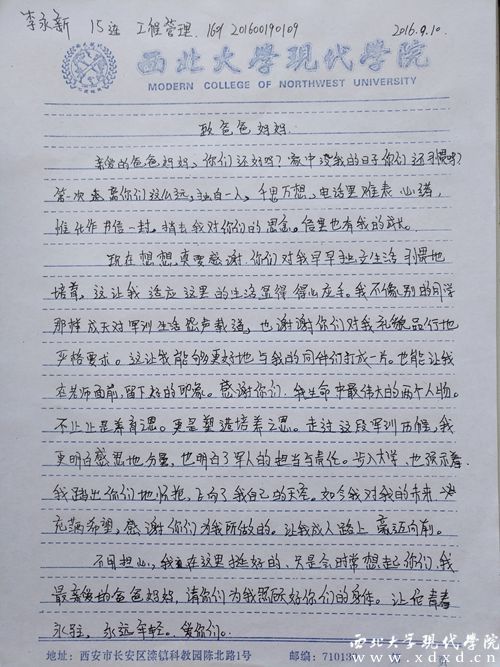 李永新 15连 工程管理 1601 201600190109 2016.9.10.
西北大学现代学院
MODERN COLLEGE OF NORTHWEST UNIVERSITY
致爸爸妈妈
亲爱的爸爸妈妈，你们还好吗？家中没我的日子你们还习惯吗？
第一次离你们这么远，独自一人，千思万想，电话里难表心绪，
惟化作书信一封。捎去我对你们的思念。信里也有我的成长。
现在想想真要感谢你们对我早早独立生活习惯地
培育，这让我适应这里的生活显得得心应手。我不像别的同学
那样成天对军训生活怨声载道，也谢谢你们对我礼貌品行地
严格要求。这让我能够更好地与我的同伴们打成一片。也能让我
在老师面前，留下好的印象。感谢你们，我生命中最伟大的两个人物。
不止止是养育之恩。更是塑造培养之恩。走过这段军训历程，我
更明白感恩地分量，也明白了军人的担当与责任。步入大学，也预示着
我踏出你们地怀抱，飞向了我自己的天空。如今我对我的未来
充满希望，感谢你们为我所做的。让我成人路上豪迈向前。
不用担心，我在这里挺好的，只是会时常想起你们，我
最亲爱的爸爸妈妈，请你们为我照顾好你们的身体。让在青春
永驻，永远年轻。爱你们。
地址：西安市长安区滦镇科教园陈北路1号 邮编：71013
西北大学现代学院
www.xdxd.cn